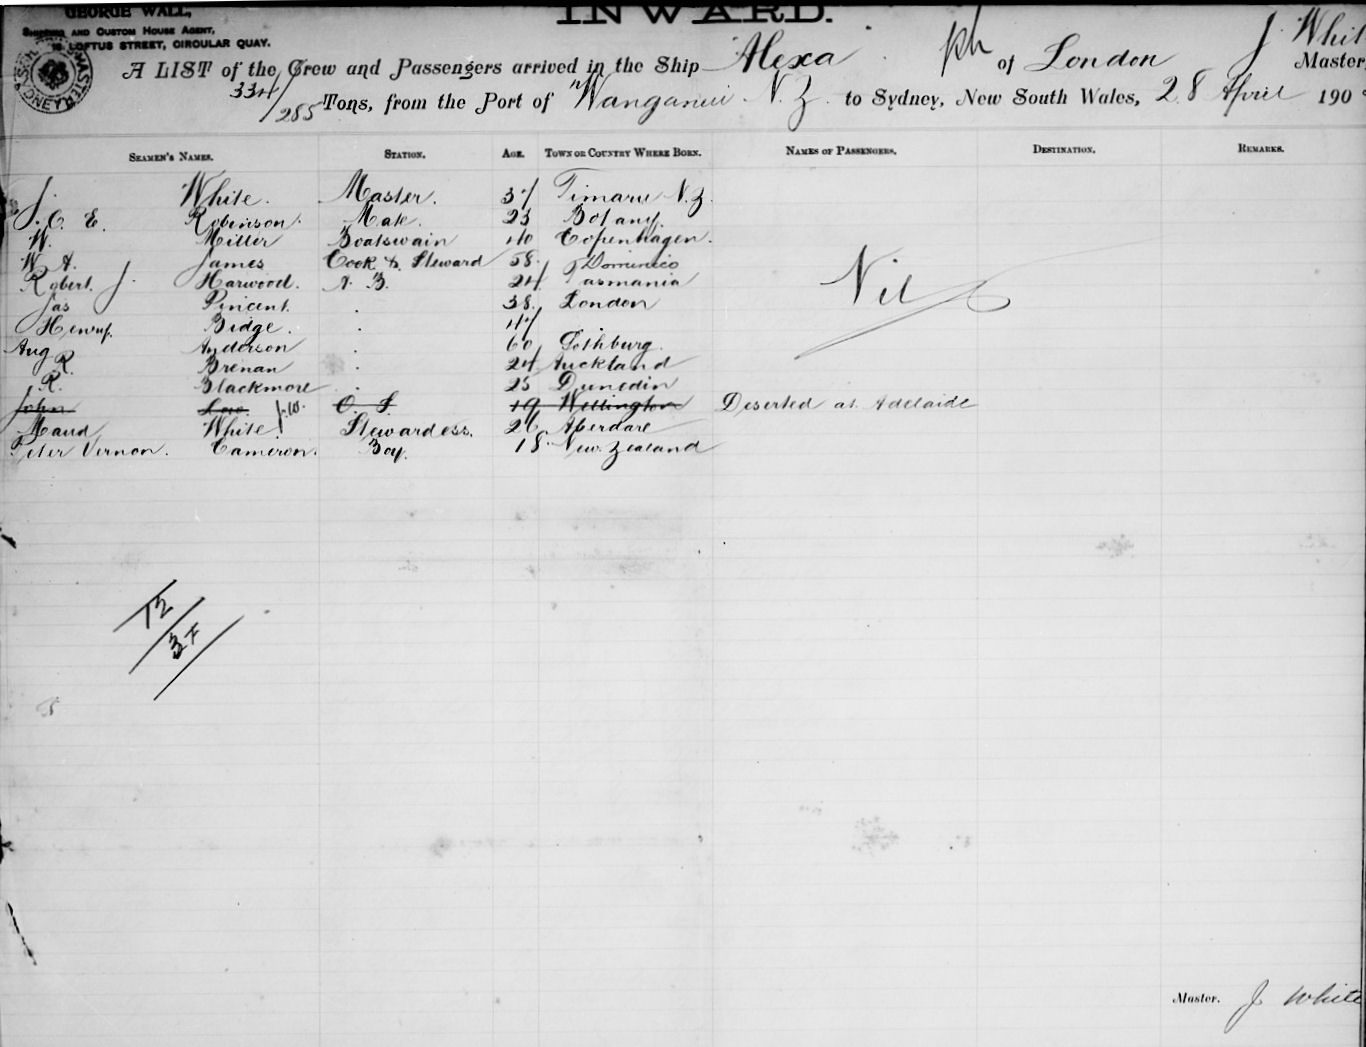 GEORGE WALL,
INWARD.
SHIPPING AND CUSTOM HOUSE AGENT,
16 LOFTUS STREET, CIRCULAR QUAY.
A LIST of the Crew and Passengers arrived in the Ship Alexa of London J White Master,
334/285 Tons, from the Port of Wanganui N.Z. to Sydney, New South Wales, 28 April 190
SEAMEN'S NAMES. STATION. AGE. TOWN OR COUNTRY WHERE BORN. NAMES OF PASSENGERS. DESTINATION. REMARKS.
J. White. Master. 37 Timaru N.Z.
J. C. E. Robinson. Mate. 23 Botany.
W. Miller Boatswain 40 Copenhagen.
W. A. James Cook & Steward 58. Dominico
Robert. J. Harwood. A. B. 24 Tasmania
Nil
Jas Pincent. 38. London
Henry. Bidge. 47
Aug Anderson 60 Gothburg.
R. Brenan 24 Auckland
R. Blackmore 25 Dunedin
John Low. J.W. O. S. 19 Wellington Deserted at Adelaide
Maud White. Stewardess. 26 Aberdare
Peter Vernon. Cameron. Boy. 18. New Zealand
12
Master. J White